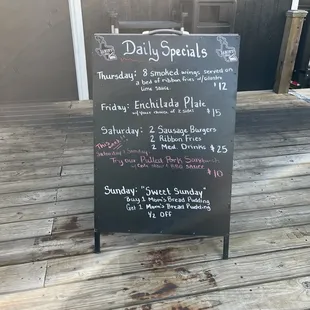 Daily Specials
Thursday: 8 smoked wings served on
a bed of ribbon fries w/
lime sauce. $12
Friday: Enchilada Plate
w/ your choice of 2 sides $15
Saturday: 2 Sausage Burgers
2 Ribbon Fries
2 Med. Drinks $25
Saturday & Sunday
Try our Pulled Pork Sandwich
w/ slaw & BBQ sauce $10
Sunday: "Sweet Sunday"
Buy 1 Mom's Bread Pudding
Get 1 Mom's Bread Pudding
1/2 Off